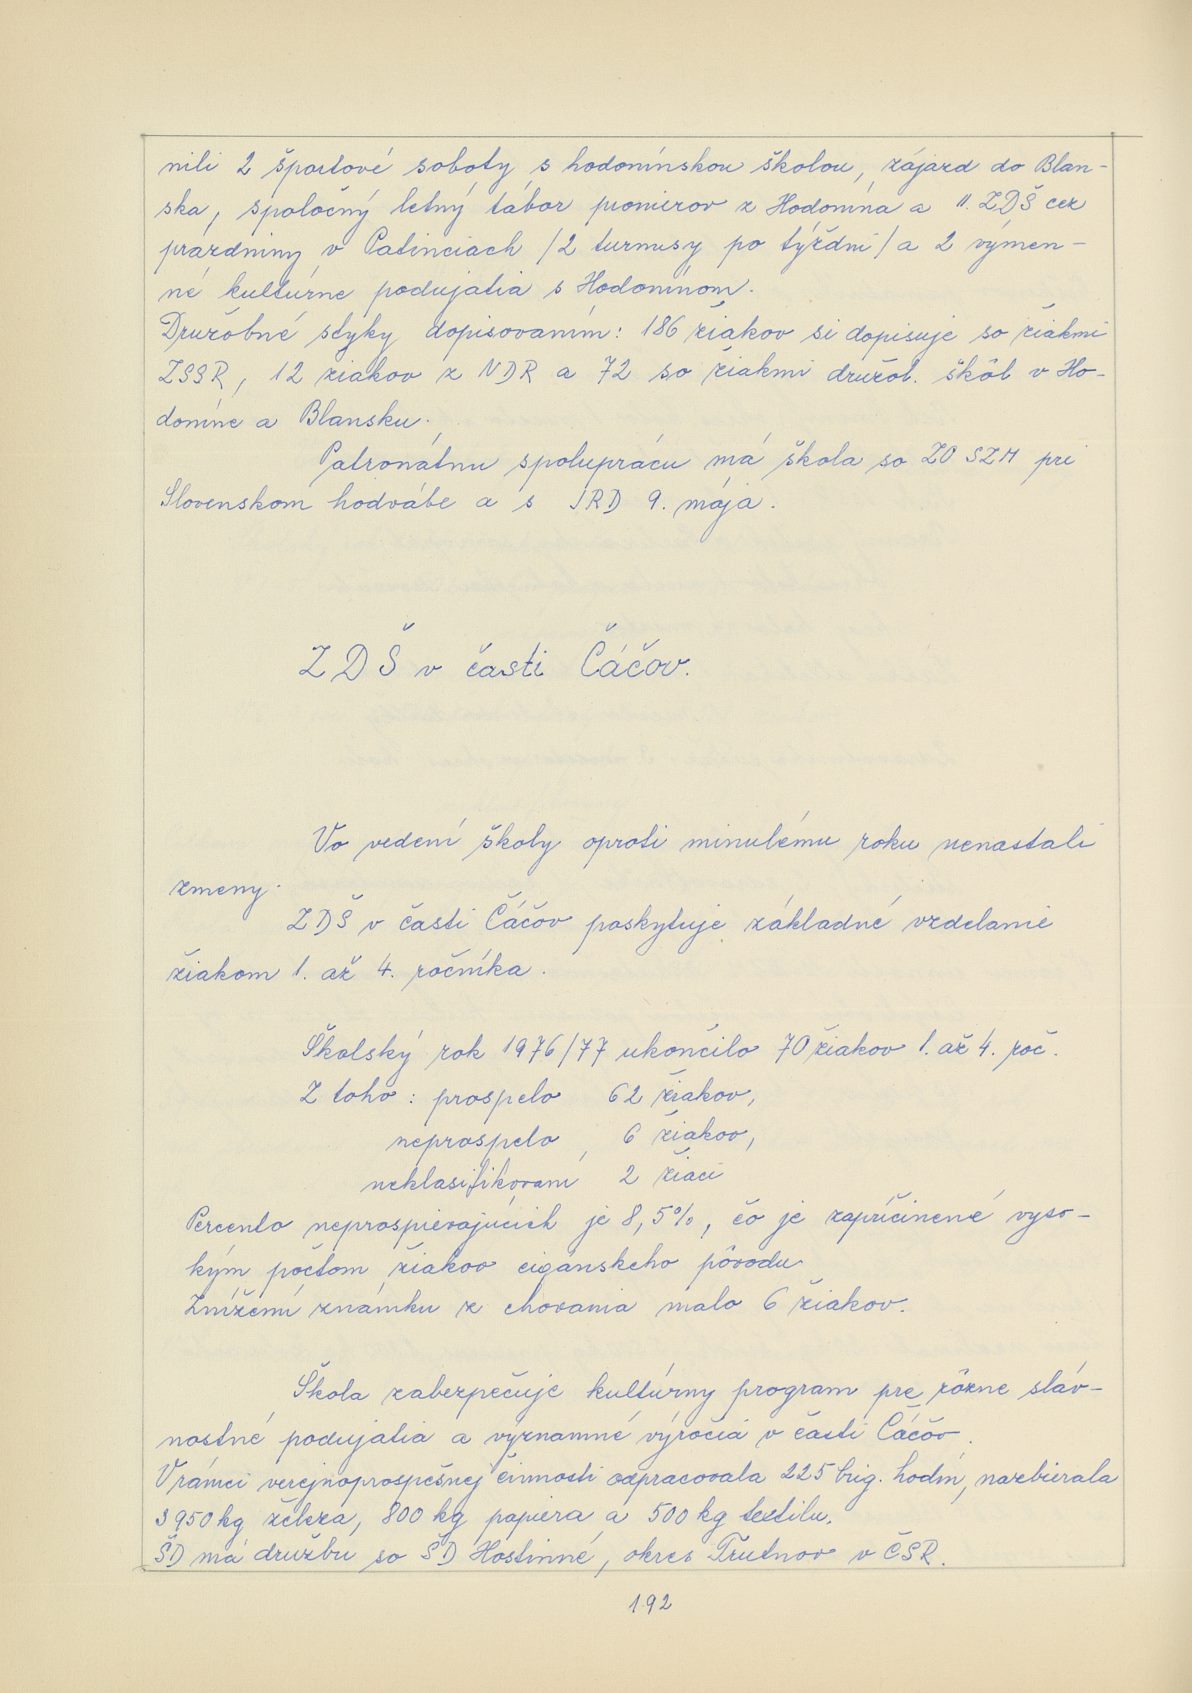 nili 2 športové soboty s hodonínskou školou, zájazd do Blan-
ska, spoločný letný tábor pionierov z Hodonína a II. ZDŠ cez
prázdniny v Patinciach /2 turnusy po týždni/ a 2 výmen-
né kultúrne podujatia s Hodonínom.
Družobné styky dopisovaním: 186 žiakov si dopisuje so žiakmi
ZSSR, 12 žiakov z NDR a 72 so žiakmi družob. škôl v Ho-
doníne a Blansku.
Patronátnu spoluprácu má škola so ZO SZM pri
Slovenskom hodvábe a s JRD 9. mája.
ZDŠ v časti Čáčov.
Vo vedení školy oproti minulému roku nenastali
zmeny.
ZDŠ v časti Čáčov poskytuje základné vzdelanie
žiakom 1. až 4. ročníka.
Školský rok 1976/77 ukončilo 70 žiakov 1. až 4. roč.
Z toho: prospelo 62 žiakov,
neprospelo 6 žiakov,
neklasifikovaní 2 žiaci
Percento neprospievajúcich je 8,5%, čo je zapríčinené vyso-
kým počtom žiakov cigánskeho pôvodu
Zníženú známku z chovania malo 6 žiakov.
Škola zabezpečuje kultúrny program pre rôzne sláv-
nostné podujatia a významné výročia v časti Čáčov.
V rámci verejnoprospešnej činnosti odpracovala 225 brig. hodín, nazbierala
3950 kg železa, 800 kg papiera a 500 kg textilu.
ŠD má družbu so ŠD Hostinné, okres Trutnov v ČSR.
192